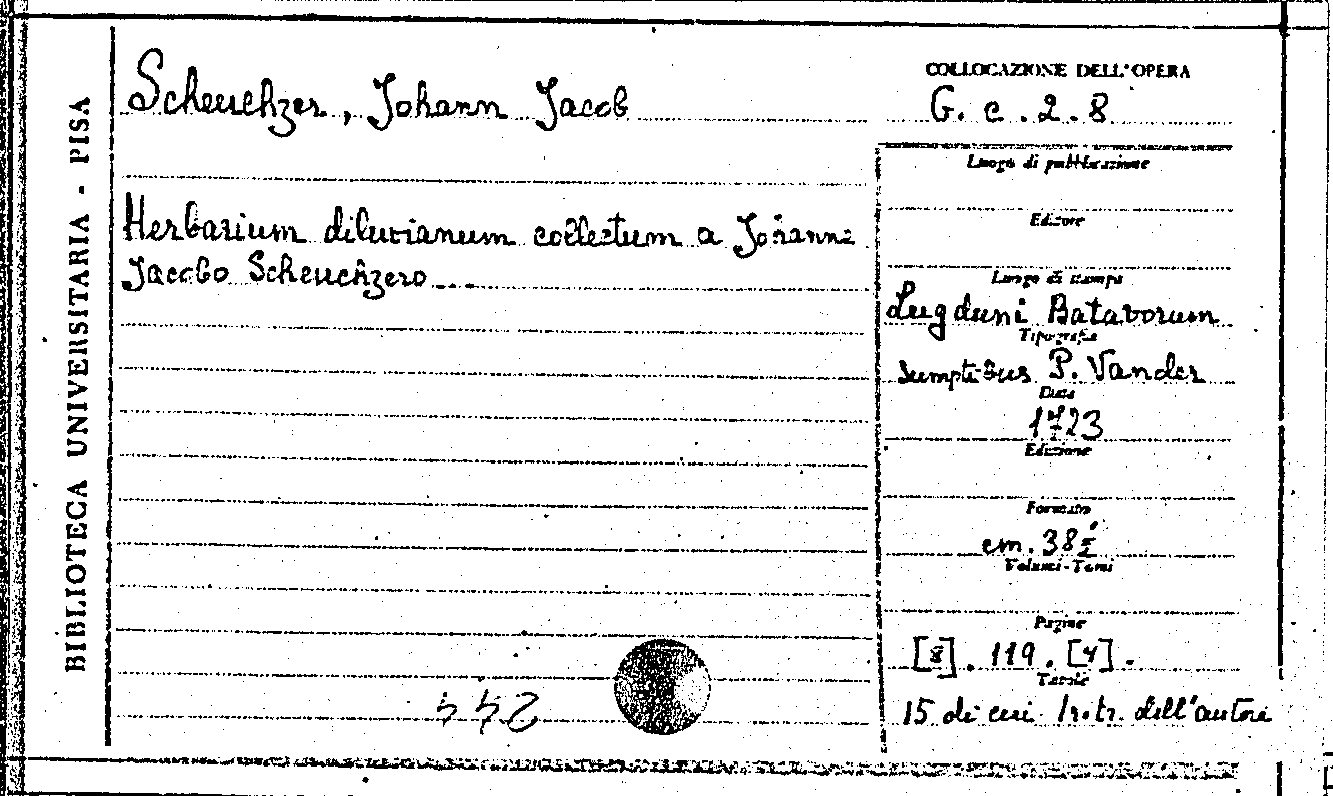 BIBLIOTECA UNIVERSITARIA - PISA
Scheuchzer, Johann Jacob
Herbarium diluvianum collectum a Johanne
Jacobo Scheuchzero...
COLLOCAZIONE DELL'OPERA
G. c. 2. 8
Luogo di pubblicazione
Editore
Luogo di stampa
Lugduni Batavorum
Tipografia
sumptibus P. Vander
Data
1723
Edizione
Formato
cm. 38½
Volumi-Tomi
Pagine
[8]. 119. [4].
Tavole
15 di cui 1 dell'autore
244